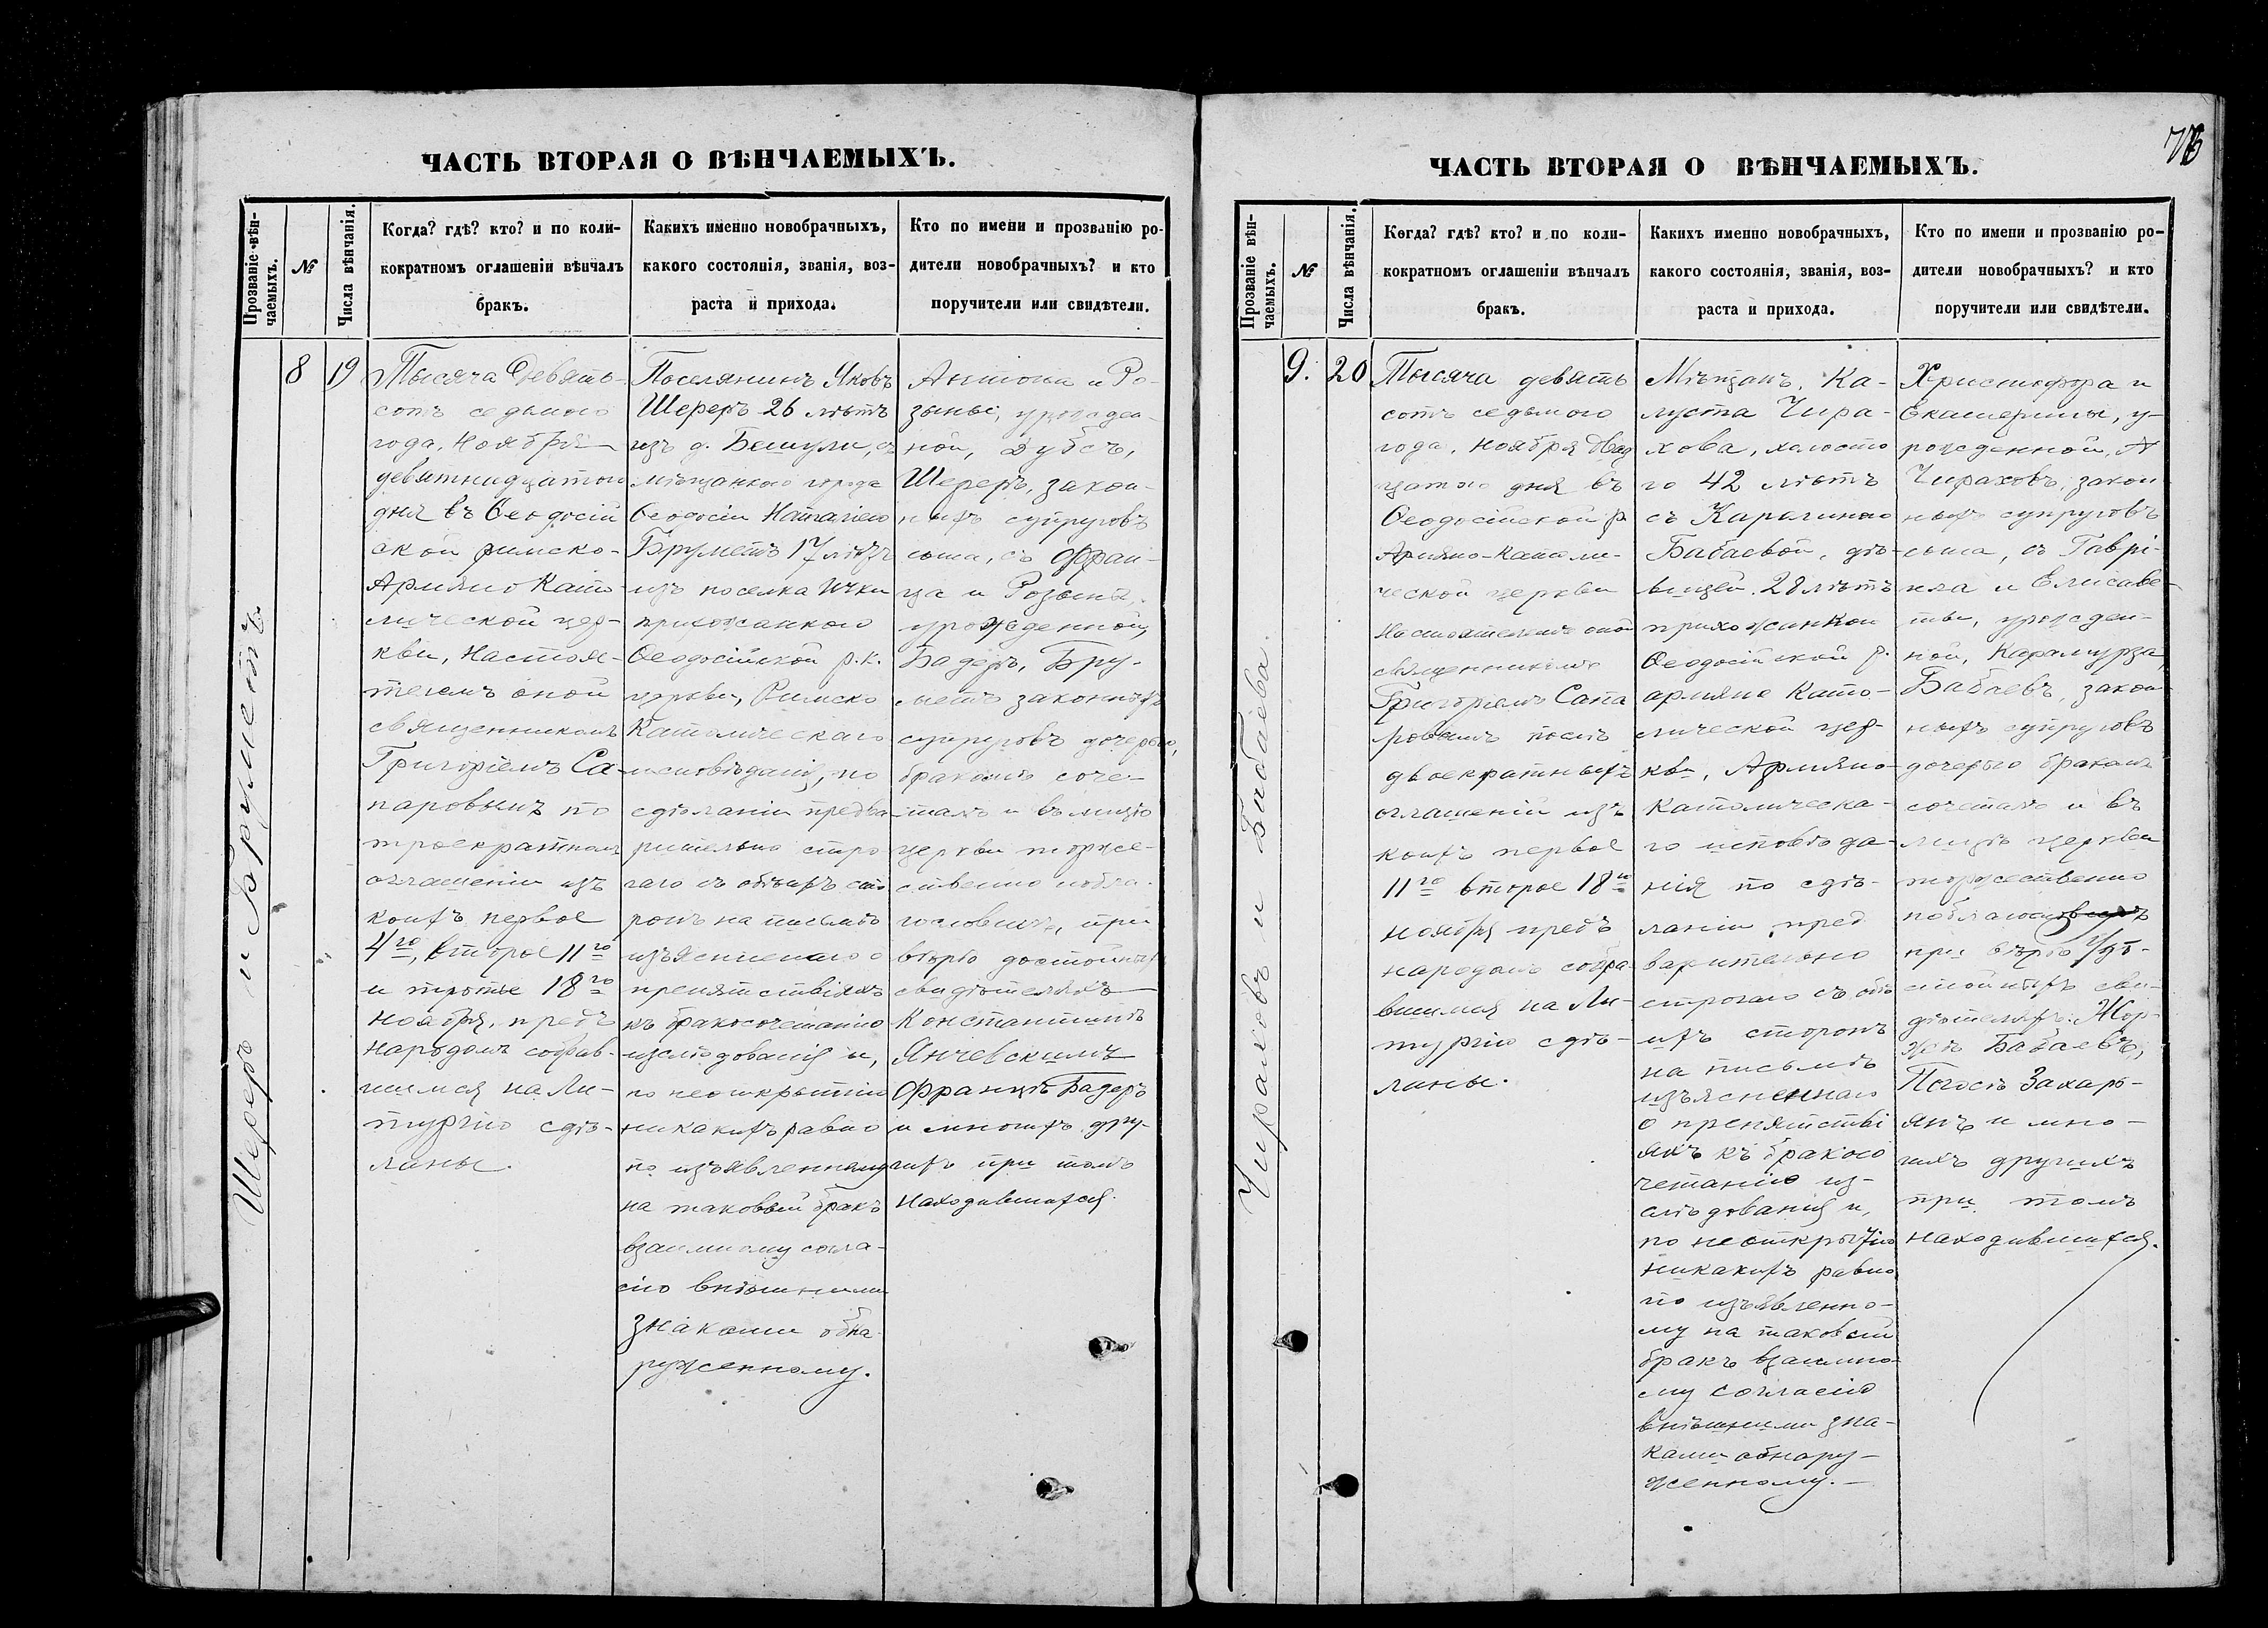 76
ЧАСТЬ ВТОРАЯ О ВѢНЧАЕМЫХЪ.
Прозваніе вѣн-
чаемыхъ.
№
Числа вѣнчанія.
Когда? гдѣ? кто? и по коли-
кократномъ оглашеніи вѣнчалъ
бракъ.
Какихъ именно новобрачныхъ,
какого состоянія, званія, воз-
раста и прихода.
Кто по имени и прозванію ро-
дители новобрачныхъ? и кто
поручители или свидѣтели.
Шереръ и Бруметъ
8
19
Тысяча Девять-
сотъ седьмого
года, Ноября
девятнадцатого
дня въ Ѳеодосій
ской римско-
Армяно Като-
лической цер-
кви, Настоя-
телемъ оной
священникомъ
Григоріемъ Са-
паровымъ по
троекратномъ
оглашеніи изъ
коихъ первое
4го, второе 11го
и третье 18го
Ноября, предъ
народомъ собрав-
шимся на Ли-
тургію сдѣ-
ланы.
Поселянинъ Яковъ
Шереръ 26 лѣтъ
изъ д. Бешули, съ
мѣщанкою города
Ѳеодосіи Наталіею
Бруметъ 17 лѣтъ
изъ поселка Ички
прихожанкою
Ѳеодосійской р.к.
церкви, Римско
Католическаго
исповѣданія, по
сдѣланіи предва
рительно стро
гаго съ обѣихъ сто
ронъ на письмѣ
изъясненнаго о
препятствіяхъ
къ бракосочетанію
изслѣдованія и,
по неоткрытію
никакихъ равно
по изъявленному
на таковый бракъ
взаимному согла-
сію внѣшними
знаками обна-
руженному.
Антона и Ро-
зыны, урожден-
ной, Дубсъ,
Шереръ, закон-
ныхъ супруговъ
сына, съ Фран-
ца и Розыны,
урожденной,
Бадеръ, Бру-
метъ законныхъ
супруговъ дочерью,
бракомъ соче-
талъ и въ лицѣ
церкви торже-
ственно побла-
гословилъ, при
вѣрѣ достойныхъ
свидѣтеляхъ
Константинѣ
Янчевскимъ
Францѣ Бадеръ
и многихъ дру-
гихъ при томъ
находившихся.
ЧАСТЬ ВТОРАЯ О ВѢНЧАЕМЫХЪ.
Прозваніе вѣн-
чаемыхъ.
№
Числа вѣнчанія.
Когда? гдѣ? кто? и по коли-
кократномъ оглашеніи вѣнчалъ
бракъ.
Какихъ именно новобрачныхъ,
какого состоянія, званія, воз-
раста и прихода.
Кто по имени и прозванію ро-
дители новобрачныхъ? и кто
поручители или свидѣтели.
Чираховъ и Бабаева.
9.
20
Тысяча девять
сотъ седьмого
года, ноября двад
цатого дня въ
Ѳеодосійской р
Армяно-Католи-
ческой церкви
Настоятелемъ оной
священникомъ
Григоріемъ Сапа
ровымъ послѣ
двоекратныхъ
оглашеній изъ
коихъ первое
11го второе 18го
ноября предъ
народомъ собра-
вшимся на Ли-
тургію сдѣ-
ланы.
Мѣщанъ, Ка-
луста Чира-
хова, холосто
го 42 лѣтъ
съ Каролиною
Бабаевой, дѣ-
вицей 28 лѣтъ
прихожанкой
Ѳеодосійской р.
армяно Като-
лической цер-
кви, Армяно-
Католическа-
го исповѣда-
нія по сдѣ-
ланіи пред
варительно
строгаго съ обѣ
ихъ сторонъ
на письмѣ
изъясненнаго
о препятстві
яхъ къ бракосо
четанію из-
слѣдованія и,
по неоткрытію
никакихъ равно
по изъявленно-
му на таковый
бракъ взаимно-
му согласію
внѣшними зна-
ками обнару-
женному.—
Христофора и
Екатерины, у-
рожденной, N
Чираховъ, закон
ныхъ супруговъ
сына, съ Гаврі-
ила и Елисаве-
ты, урожден-
ной, Карамурза,
Бабаевъ, закон-
ныхъ супруговъ
дочерью бракомъ
сочеталъ и въ
лицѣ церкви
торжественно
поблагословилъ
при вѣрѣ до-
стойныхъ сви-
дѣтеляхъ: Жор-
жѣ Бабаевъ,
Погосъ Захарь-
янъ и мно-
гихъ другихъ
при томъ
находившихся.